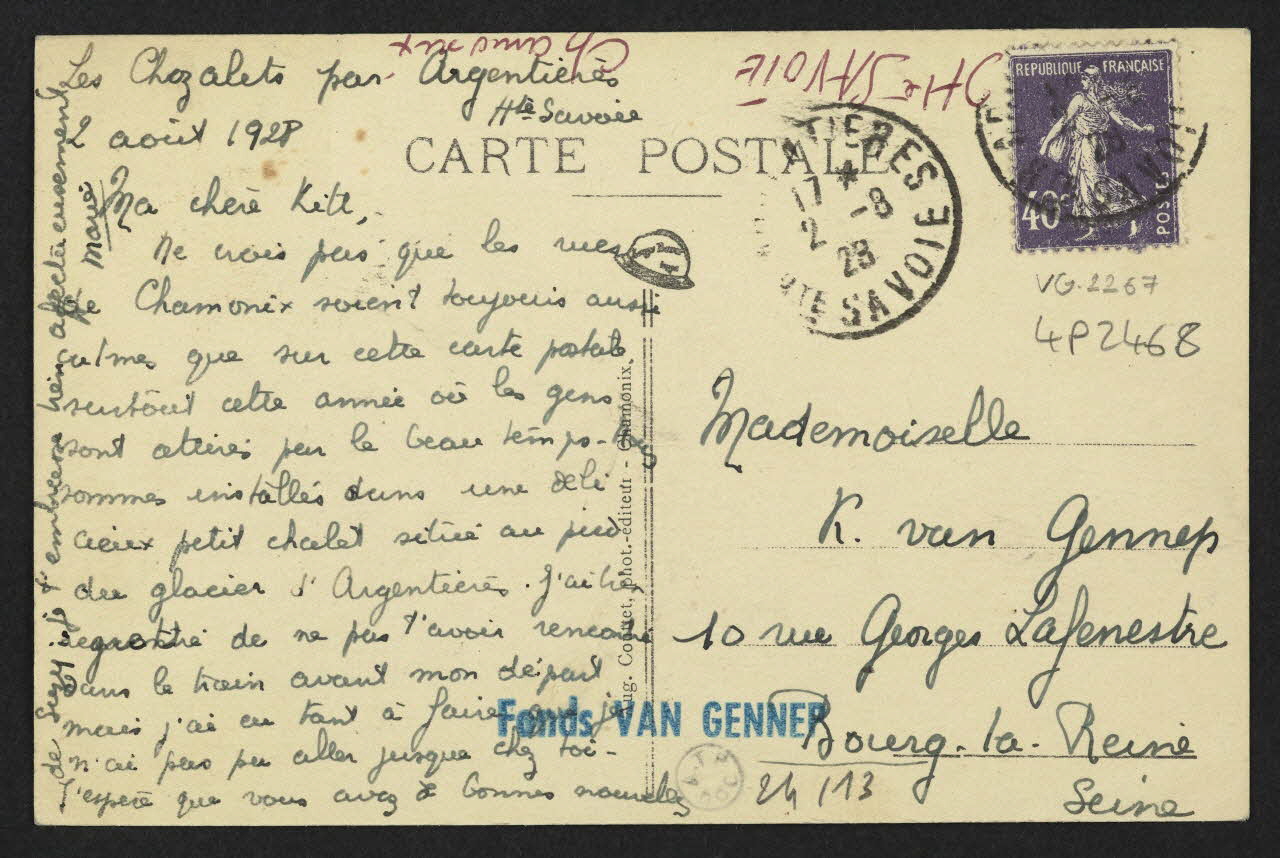 Les Chozalets par Argentières
Hte Savoie
2 août 1928
Ma chère Kett,
Ne crois pas que les rues
de Chamonix soient toujours aussi
calmes que sur cette carte postale
surtout cette année où les gens
sont attirés par le beau temps-
sommes installés dans une déli
cieux petit chalet situé au pied
du glacier d'Argentières. J'ai très
regretté de ne pas t'avoir rencontré
dans le train avant mon départ
mais j'ai eu tant à faire que je
n'ai pas pu aller jusque chez toi-
J'espère que vous avez de bonnes nouvelles
de Suzy. je t'embrasse bien affectueusement
Chamonix
Hte SAVOIE
CARTE POSTALE
Aug. Couttet, phot.-éditeur - Chamonix.
REPUBLIQUE FRANÇAISE
40c
POSTES
TIERES
17 * 2 -8
28
HTE SAVOIE
VG.2267
4P2468
Mademoiselle
K. van Gennep
10 rue Georges Lafenestre
Bourg-la-Reine
Seine
Fonds VAN GENNEP
24/13